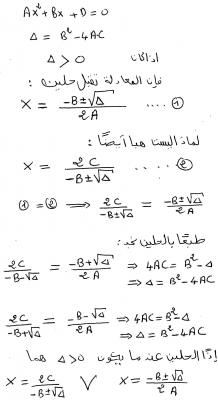 Ax² + Bx + D = 0
Δ = B² - 4AC
اذا كان Δ > 0
فإن المعادلة تقبل حلين :
X = (-B ± √Δ) / 2A .... ①
لماذا ليست هما أيضًا :
X = 2C / (-B ± √Δ) .... ②
① = ② ⟹ 2C / (-B ± √Δ) = (-B ± √Δ) / 2A
طبعًا بالحلين نجد :
2C / (-B - √Δ) = (-B + √Δ) / 2A ⇒ 4AC = B² - Δ
⇒ Δ = B² - 4AC
2C / (-B + √Δ) = (-B - √Δ) / 2A ⇒ 4AC = B² - Δ
⇒ Δ = B² - 4AC
إذًا الحلين عند ما يكون Δ > 0 هما
X = 2C / (-B ± √Δ) ∨ X = (-B ± √Δ) / 2A